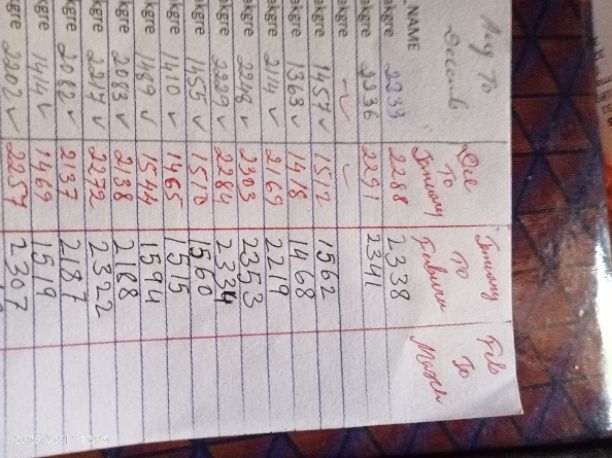 Aug To Decemb Dec To January January To Febuary Feb To March
NAME
akgre 2233 2288 2338
akgre 2236 2291 2341
akgre - ✓ ✓
akgre 1457 ✓ 1512 1562
akgre 1363 ✓ 1418 1468
akgre 2114 ✓ 2169 2219
akgre 2248 ✓ 2303 2353
akgre 2229 ✓ 2284 2334
akgre 1455 ✓ 1510 1560
akgre 1410 ✓ 1465 1515
akgre 1489 ✓ 1544 1594
akgre 2083 ✓ 2138 2188
akgre 2217 ✓ 2272 2322
akgre 2082 ✓ 2137 2187
akgre 1414 ✓ 1469 1519
gre 2202 ✓ 2257 2307